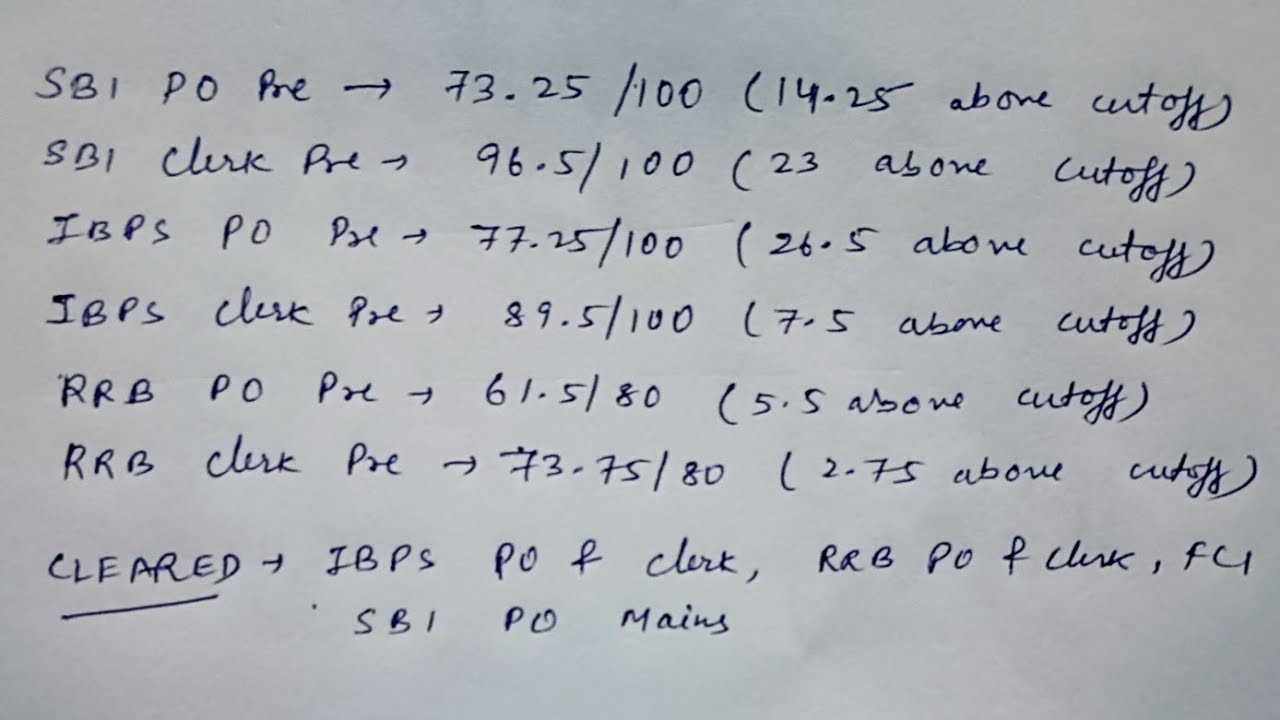 SBI PO Pre → 73.25/100 (14.25 above cutoff)
SBI Clerk Pre → 96.5/100 (23 above cutoff)
IBPS PO Pre → 77.25/100 (26.5 above cutoff)
IBPS Clerk Pre → 89.5/100 (7.5 above cutoff)
RRB PO Pre → 61.5/80 (5.5 above cutoff)
RRB Clerk Pre → 73.75/80 (2.75 above cutoff)
CLEARED → IBPS PO & Clerk, RRB PO & Clerk, FCI
SBI PO Mains